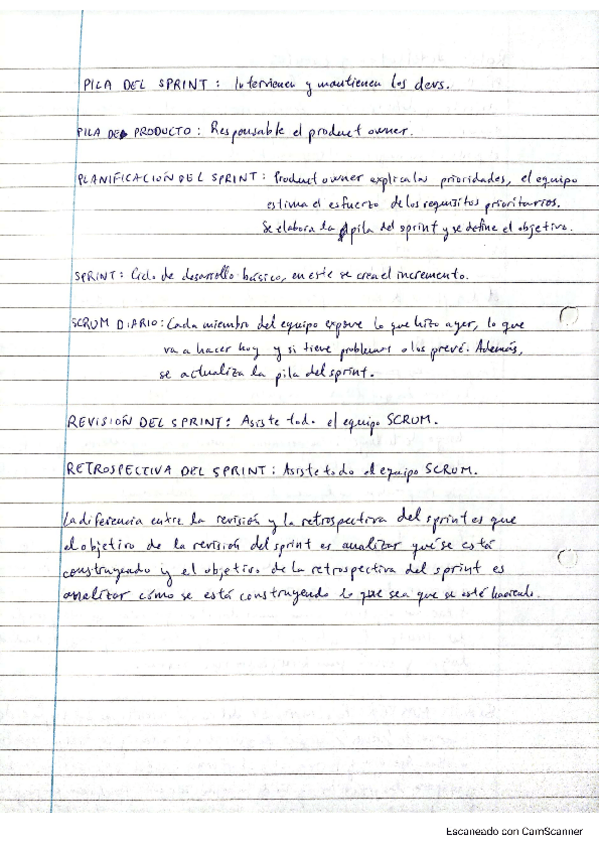 PILA DEL SPRINT: Intervienen y mantienen los devs.
PILA DEL PRODUCTO: Responsable el product owner.
PLANIFICACIÓN DEL SPRINT: Product owner explica las prioridades, el equipo
estima el esfuerzo de los requisitos prioritarios.
Se elabora la pila del sprint y se define el objetivo.
SPRINT: Ciclo de desarrollo básico, en este se crea el incremento.
SCRUM DIARIO: Cada miembro del equipo expone lo que hizo ayer, lo que
va a hacer hoy y si tiene problemas o los prevé. Además,
se actualiza la pila del sprint.
REVISIÓN DEL SPRINT: Asiste todo el equipo SCRUM.
RETROSPECTIVA DEL SPRINT: Asiste todo el equipo SCRUM.
La diferencia entre la revisión y la retrospectiva del sprint es que
el objetivo de la revisión del sprint es analizar qué se está
construyendo y el objetivo de la retrospectiva del sprint es
analizar cómo se está construyendo lo que sea que se esté haciendo.
Escaneado con CamScanner